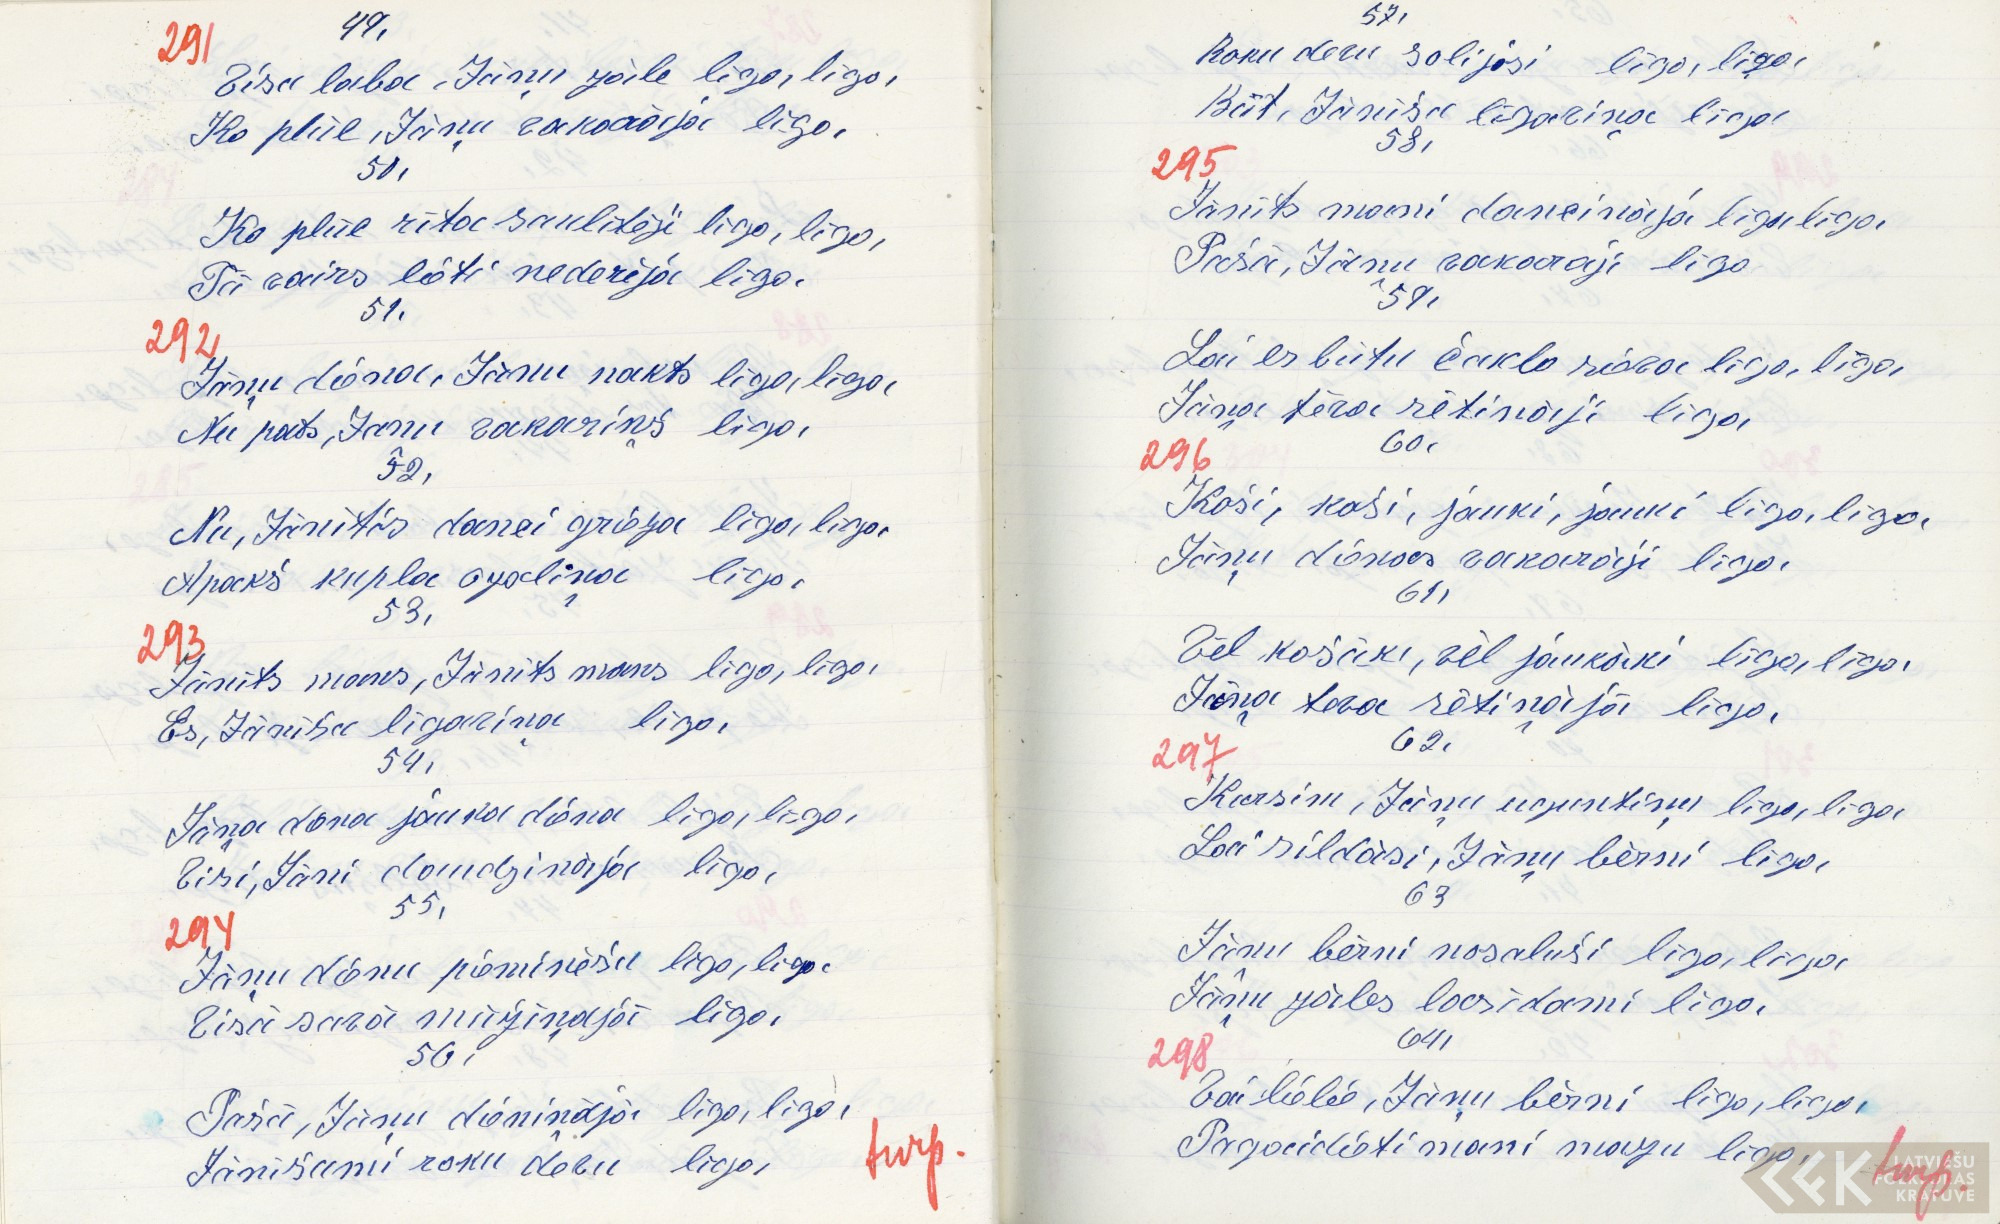 49.
291
Visa laba, Jāņu zāle līgo, līgo,
Ko plūc, Jāņu vakarājá līgo,
50.
Ko plūc rīta saulītēji līgo, līgo,
Tā vairs lôti nederēja līgo.
51.
292
Jāņu dóna, Jāņu nakts līgo, līgo,
Nu pats, Jāņu vakariņš līgo,
52.
Nu, Jānītis danci gróza līgo, līgo,
Apakš kupla ozoliņa līgo,
53.
293
Jānīts mans, Jānīts mans līgo, līgo,
Es, Jānīša līgaviņa līgo,
54.
Jāņa dóna jáuka dóna līgo, līgo,
Visi, Jāni daudzināja līgo,
55.
294
Jāņu dónu póminēšu līgo, līgo.
Visā savā mūžiņajā līgo,
56.
Pašā, Jāņu dóniņājā līgo, līgo,
Jānīšami roku devu līgo,
turp.
57.
Roku devu solijósi līgo, līgo,
Būt, Jānīša līgaviņa līgo
58.
295
Jānīts mani dancināja līgo līgo,
Pašā, Jāņu vakarāji līgo
59.
Lai es būtu čakla sóva līgo, līgo,
Jāņa tēva sētiņāji līgo,
60.
296
Koši, koši, jáuki, jáuki līgo, līgo,
Jāņu dónas vakarāji līgo,
61.
Vēl košāki, vēl jáukāki līgo, līgo,
Jāņa tēva sētiņājā līgo,
62.
297
Kursim, Jāņu uguntiņu līgo, līgo,
Lai sildāsi, Jāņu bērni līgo,
63
Jāņu bērni nosaluši līgo, līgo
Jāņu zāles lasidami līgo,
64.
298
Vái lóló, Jāņu bērni līgo, līgo,
Pagaidóti mani mazu līgo,
turp.
LATVIEŠU
FOLKLORAS
KRĀTUVE